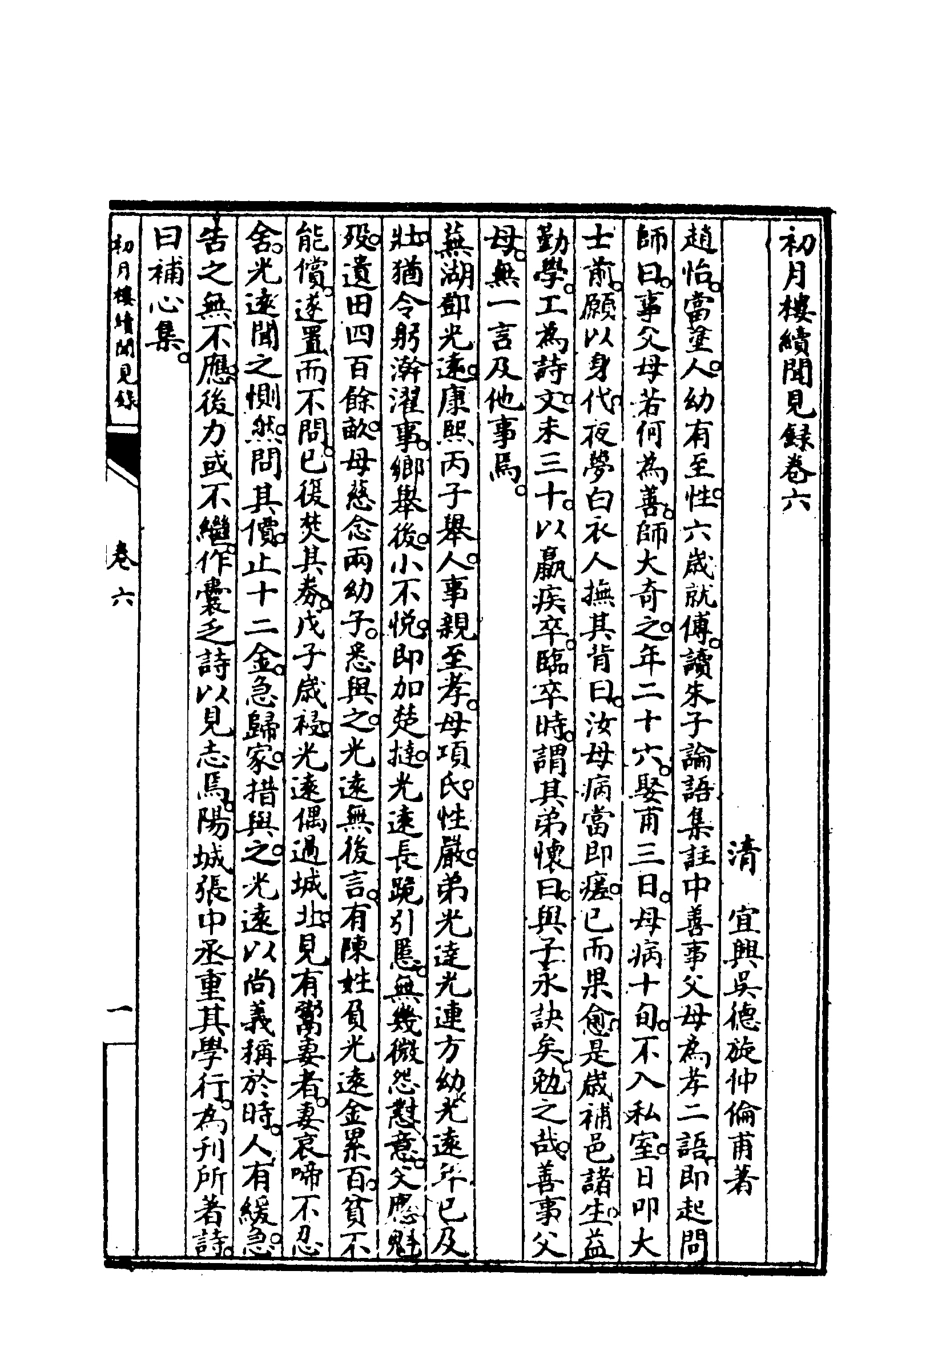 初月樓續聞見錄卷六
清　宜興吳德旋仲倫甫著
趙怡。當塗人。幼有至性。六歲就傅。讀朱子論語集註中善事父母為孝二語。即起問
師曰。事父母若何為善。師大奇之。年二十六。娶甫三日。母病十旬。不入私室。日叩大
士前。願以身代。夜夢白衣人撫其背曰。汝母病當即瘥。已而果愈。是歲補邑諸生。益
勤學。工為詩文。未三十。以羸疾卒。臨卒時。謂其弟懷曰。與子永訣矣。勉之哉。善事父
母。無一言及他事焉。
蕪湖鄧光遠。康熙丙子舉人。事親至孝。母項氏。性嚴。弟光達光連方幼。光遠年已及
壯。猶令躬澣濯事。鄉舉後。小不悅。即加楚撻。光遠長跪引慝。無幾微怨懟意。父應魁
歿。遺田四百餘畝。母慈念兩幼子。悉與之。光遠無後言。有陳姓負光遠金累百。貧不
能償。遂置而不問。已復焚其券。戊子歲祲。光遠偶過城北。見有鬻妻者。妻哀啼不忍
舍。光遠聞之惻然。問其價。止十二金。急歸家。措與之。光遠以尚義稱於時。人有緩急
告之無不應。後力或不繼。作囊乏詩以見志焉。陽城張中丞重其學行。為刊所著詩。
曰補心集。
初月樓續聞見錄
卷六
一